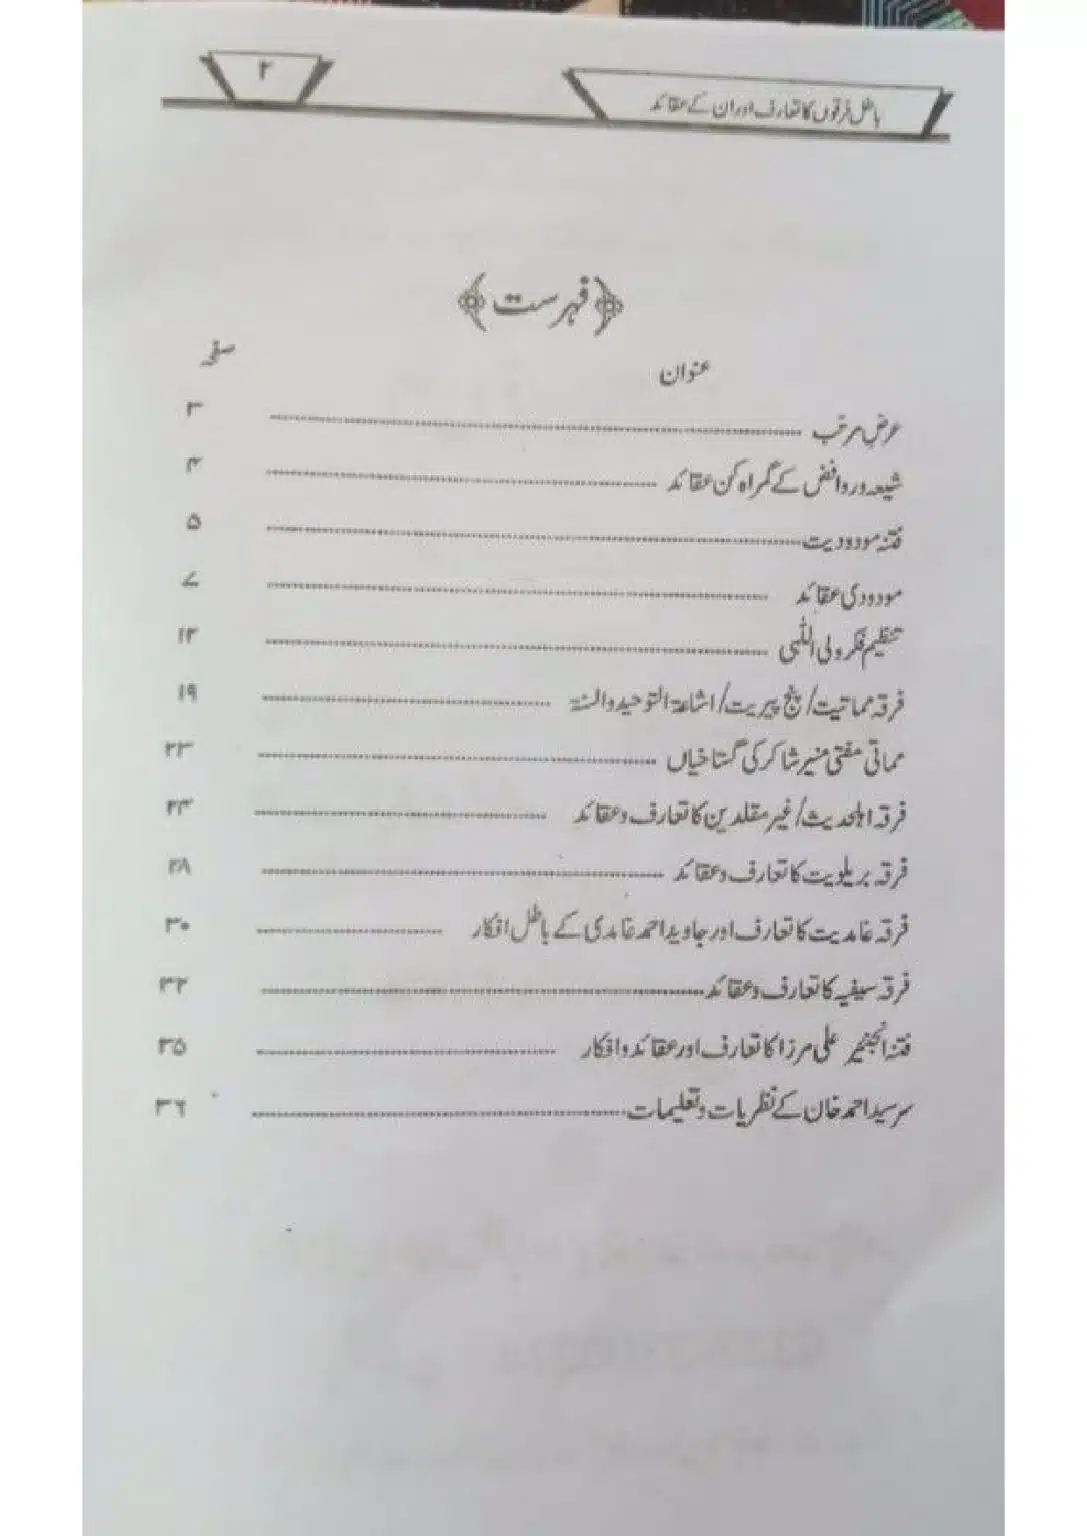 باطل فرقوں کا تعارف اور ان کے عقائد ۲
﴿فہرست﴾
عنوان صفحہ
عرض مرتب ۳
شیعہ و روافض کے گمراہ کن عقائد ۴
فتنہ مودودیت ۵
مودودی عقائد ۷
تنظیم فکر ولی اللّٰہی ۱۴
فرقہ مماتیت/پنج پیریت/اشاعۃ التوحید والسنۃ ۱۹
مماتی مفتی منیر شاکر کی گستاخیاں ۲۳
فرقہ اہلحدیث/غیر مقلدین کا تعارف و عقائد ۲۴
فرقہ بریلویت کا تعارف و عقائد ۲۸
فرقہ غامدیت کا تعارف اور جاوید احمد غامدی کے باطل افکار ۳۰
فرقہ سیفیہ کا تعارف و عقائد ۳۲
فتنہ انجنئیر علی مرزا کا تعارف اور عقائد و افکار ۳۵
سرسید احمد خان کے نظریات و تعلیمات ۳۶